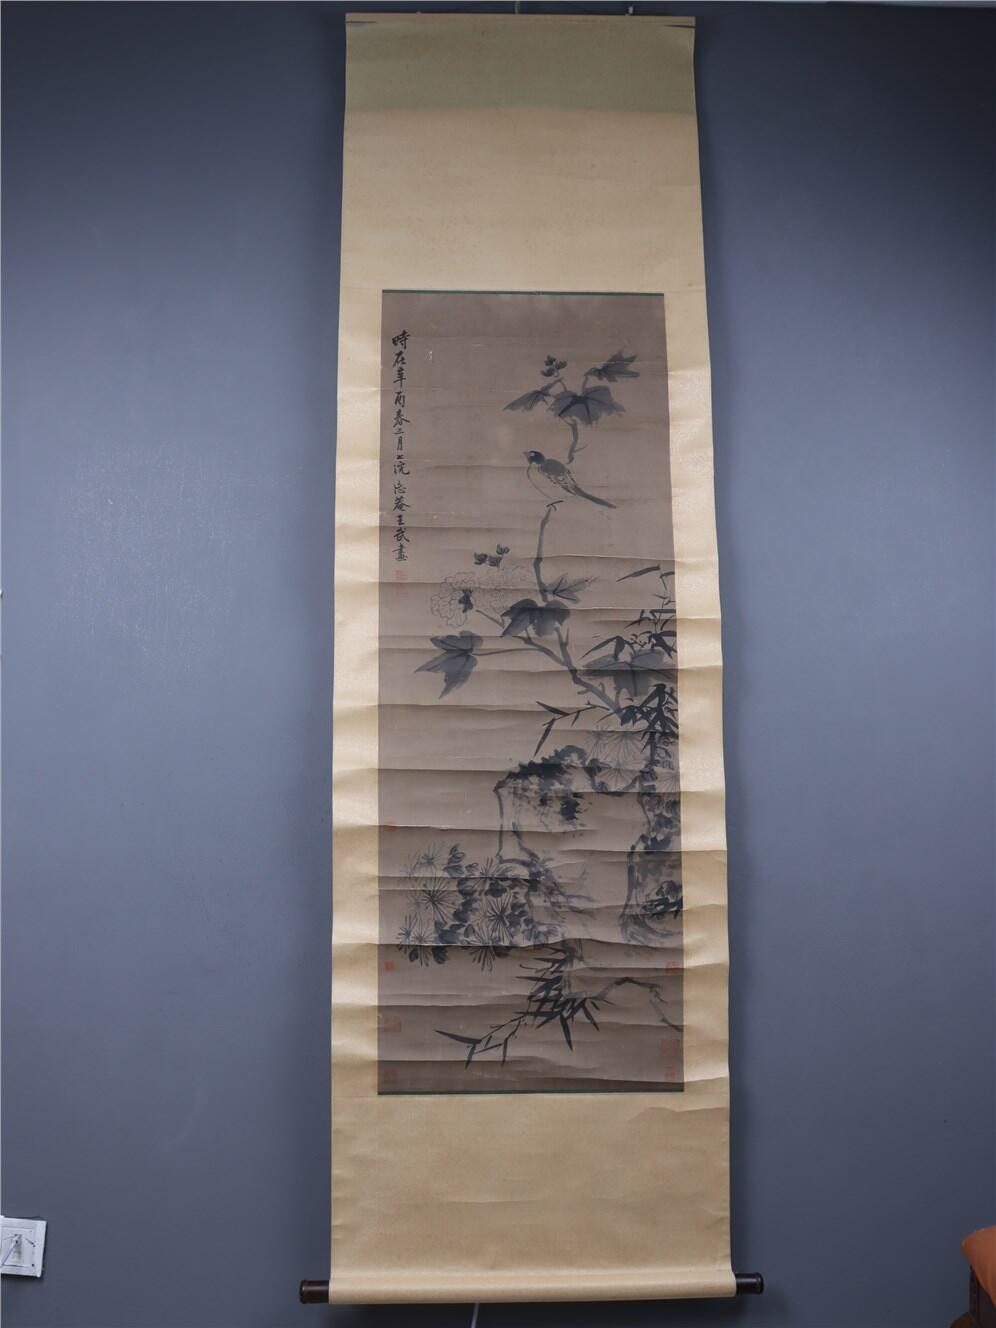 時在辛酉春二月上浣忘菴王武畫